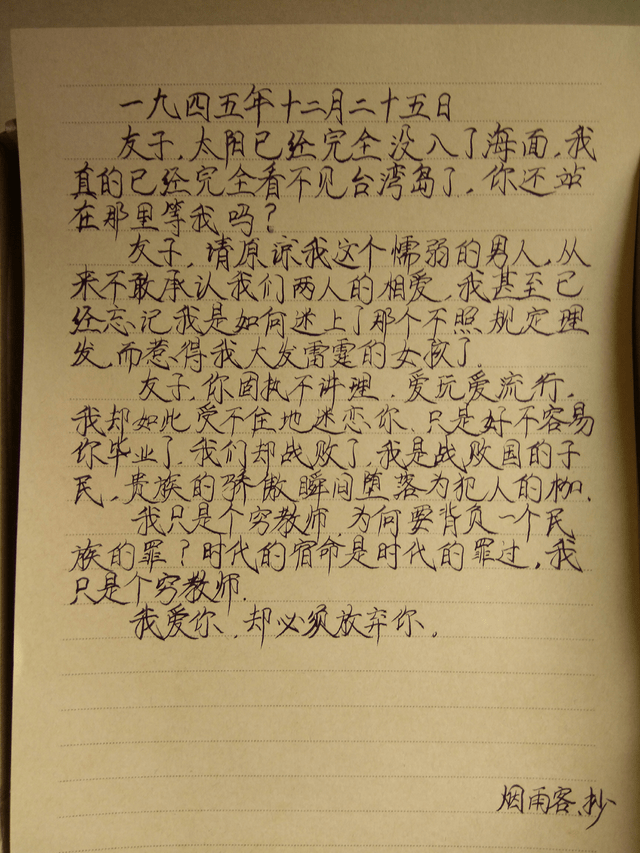 一九四五年十二月二十五日
友子,太阳已经完全没入了海面,我
真的已经完全看不见台湾岛了,你还站
在那里等我吗?
友子,请原谅我这个懦弱的男人,从
来不敢承认我们两人的相爱,我甚至已
经忘记我是如何迷上了那个不照规定理
发,而惹得我大发雷霆的女孩了.
友子,你固执不讲理.爱玩爱流行,
我却如此受不住地迷恋你.只是好不容易
你毕业了.我们却战败了,我是战败国的子
民,贵族的骄傲瞬间堕落为犯人的枷.
我只是个穷教师.为何要背负一个民
族的罪?时代的宿命是时代的罪过,我
只是个穷教师.
我爱你.却必须放弃你。
烟雨客、抄